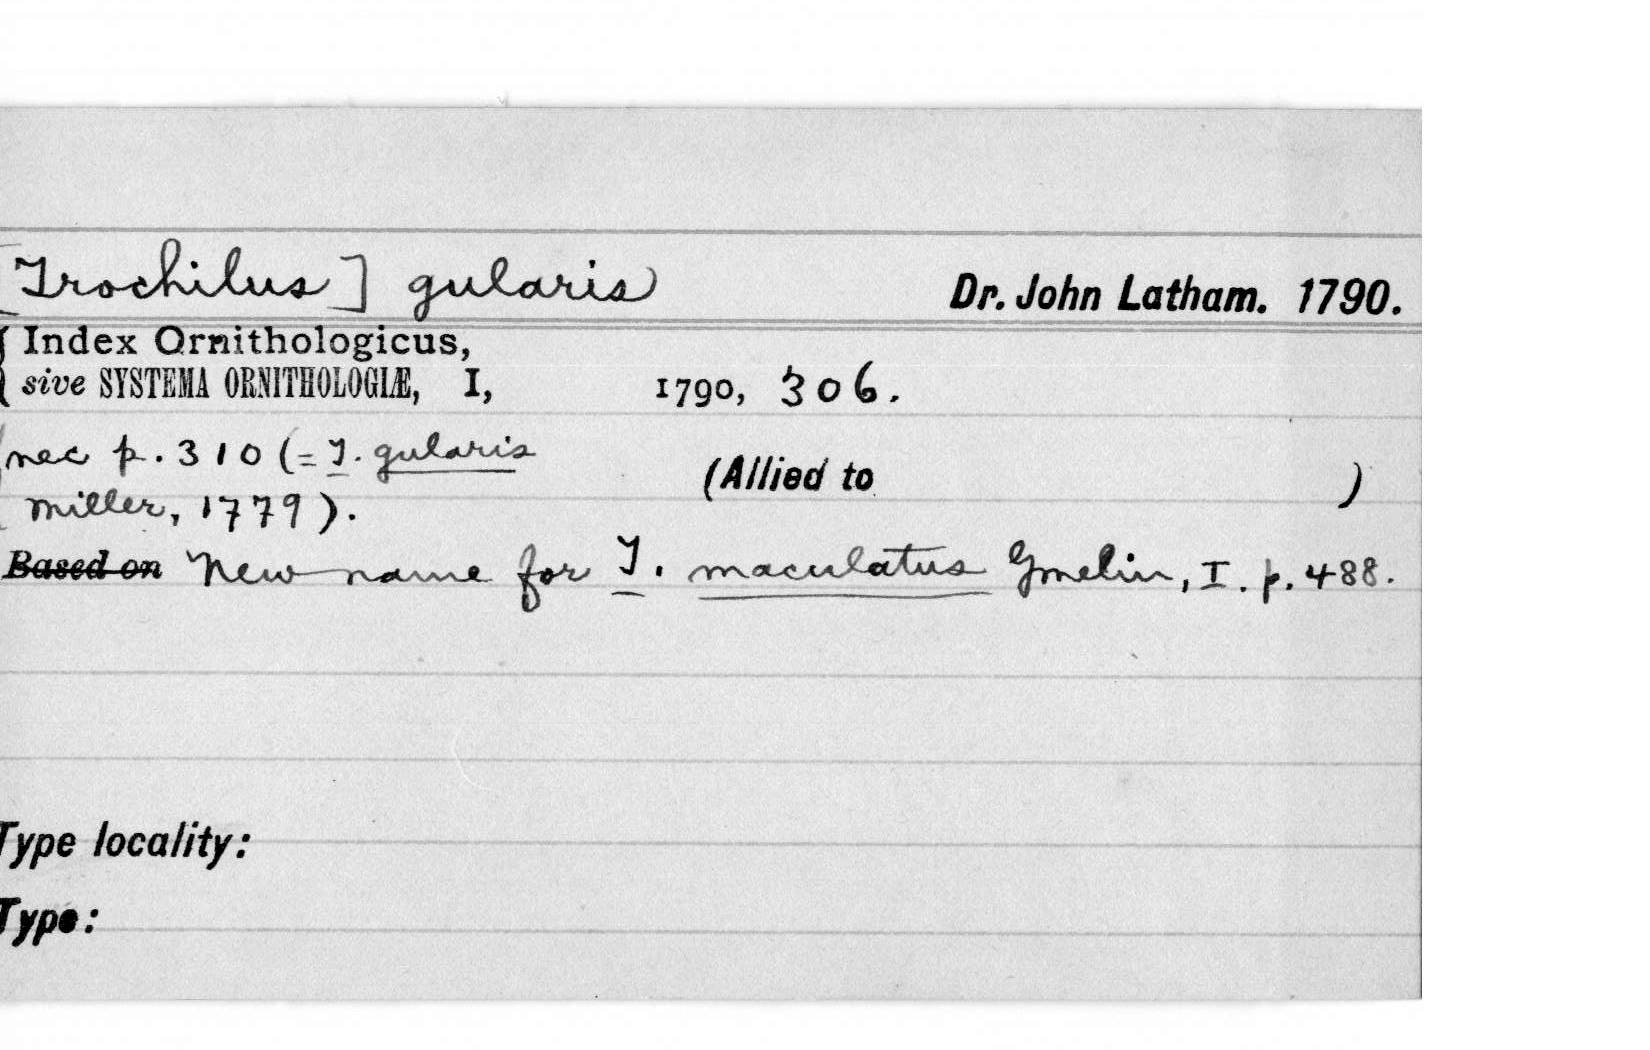 [Trochilus] gularis
Dr. John Latham. 1790.
Index Ornithologicus,
sive SYSTEMA ORNITHOLOGIÆ, I, 1790, 306.
nec p. 310 (= T. gularis
Miller, 1779).
(Allied to )
Based on New name for T. maculatus Gmelin, I. p. 488.
Type locality:
Type: